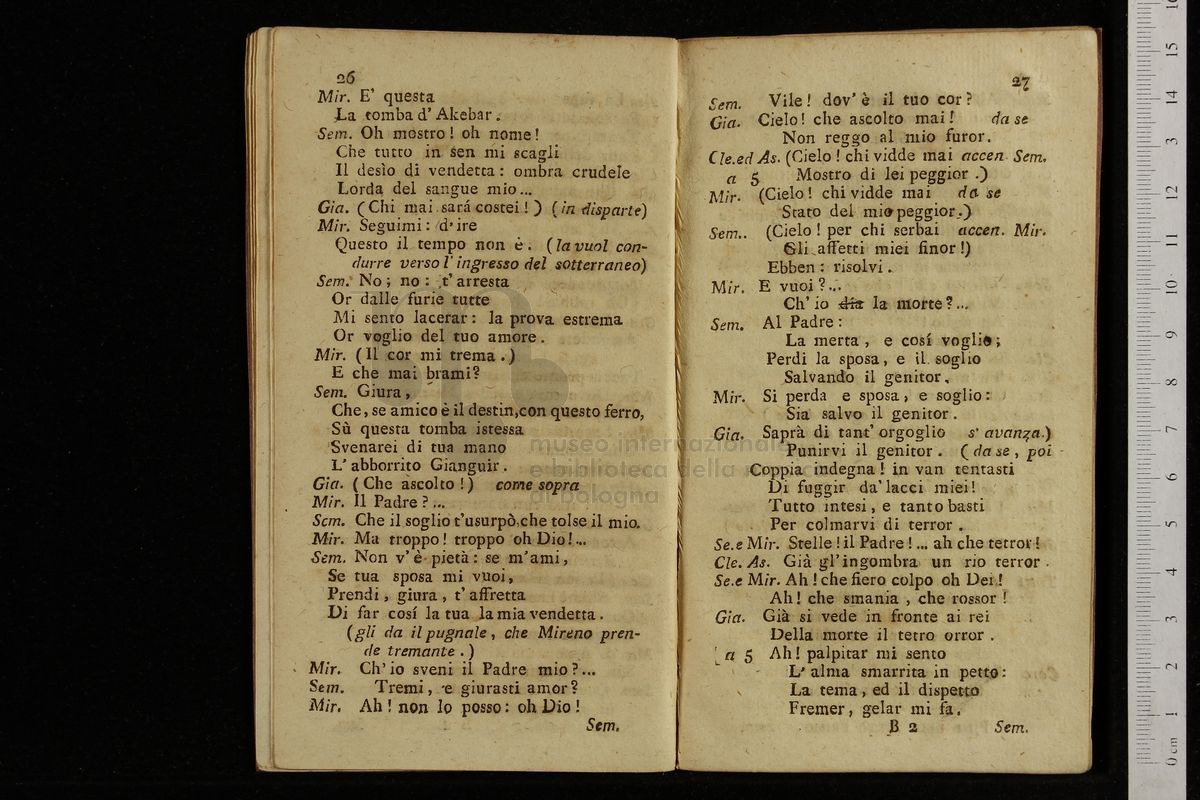 26
Mir. E' questa
La tomba d' Akebar.
Sem. Oh mostro! oh nome!
Che tutto in sen mi scagli
Il desìo di vendetta: ombra crudele
Lorda del sangue mio...
Gia. (Chi mai sará costei!) (in disparte)
Mir. Seguimi: d' ire
Questo il tempo non è. (la vuol con-
durre verso l' ingresso del sotterraneo)
Sem. No; no: t' arresta
Or dalle furie tutte
Mi sento lacerar: la prova estrema
Or voglio del tuo amore.
Mir. (Il cor mi trema.)
E che mai brami?
Sem. Giura,
Che, se amico è il destin, con questo ferro,
Sù questa tomba istessa
Svenarei di tua mano
L' abborrito Gianguir.
Gia. (Che ascolto!) come sopra
Mir. Il Padre?...
Sem. Che il soglio t'usurpò, che tolse il mio.
Mir. Ma troppo! troppo oh Dio!...
Sem. Non v' è pietà: se m'ami,
Se tua sposa mi vuoi,
Prendi, giura, t' affretta
Di far cosí la tua la mia vendetta.
(gli da il pugnale, che Mireno pren-
de tremante.)
Mir. Ch' io sveni il Padre mio?...
Sem. Tremi, e giurasti amor?
Mir. Ah! non lo posso: oh Dio!
Sem.
27
Sem. Vile! dov' è il tuo cor?
Gia. Cielo! che ascolto mai! da se
Non reggo al mio furor.
Cle. ed As. (Cielo! chi vidde mai accen. Sem.
a 5 Mostro di lei peggior.)
Mir. (Cielo! chi vidde mai da se
Stato del mio peggior.)
Sem.. (Cielo! per chi serbai accen. Mir.
Gli affetti miei finor!)
Ebben: risolvi.
Mir. E vuoi?...
Ch' io dia la morte?...
Sem. Al Padre:
La merta, e cosí voglio;
Perdi la sposa, e il soglio
Salvando il genitor.
Mir. Si perda e sposa, e soglio:
Sia salvo il genitor.
Gia. Saprà di tant' orgoglio s' avanza.)
Punirvi il genitor. (da se, poi
Coppia indegna! in van tentasti
Di fuggir da' lacci miei!
Tutto intesi, e tanto basti
Per colmarvi di terror.
Se. e Mir. Stelle! il Padre!... ah che terror!
Cle. As. Già gl' ingombra un rio terror.
Se. e Mir. Ah! che fiero colpo oh Dei!
Ah! che smania, che rossor!
Gia. Già si vede in fronte ai rei
Della morte il tetro orror.
a 5 Ah! palpitar mi sento
L' alma smarrita in petto:
La tema, ed il dispetto
Fremer, gelar mi fa.
B 2 Sem.
museo internazionale
e biblioteca della musica
di bologna